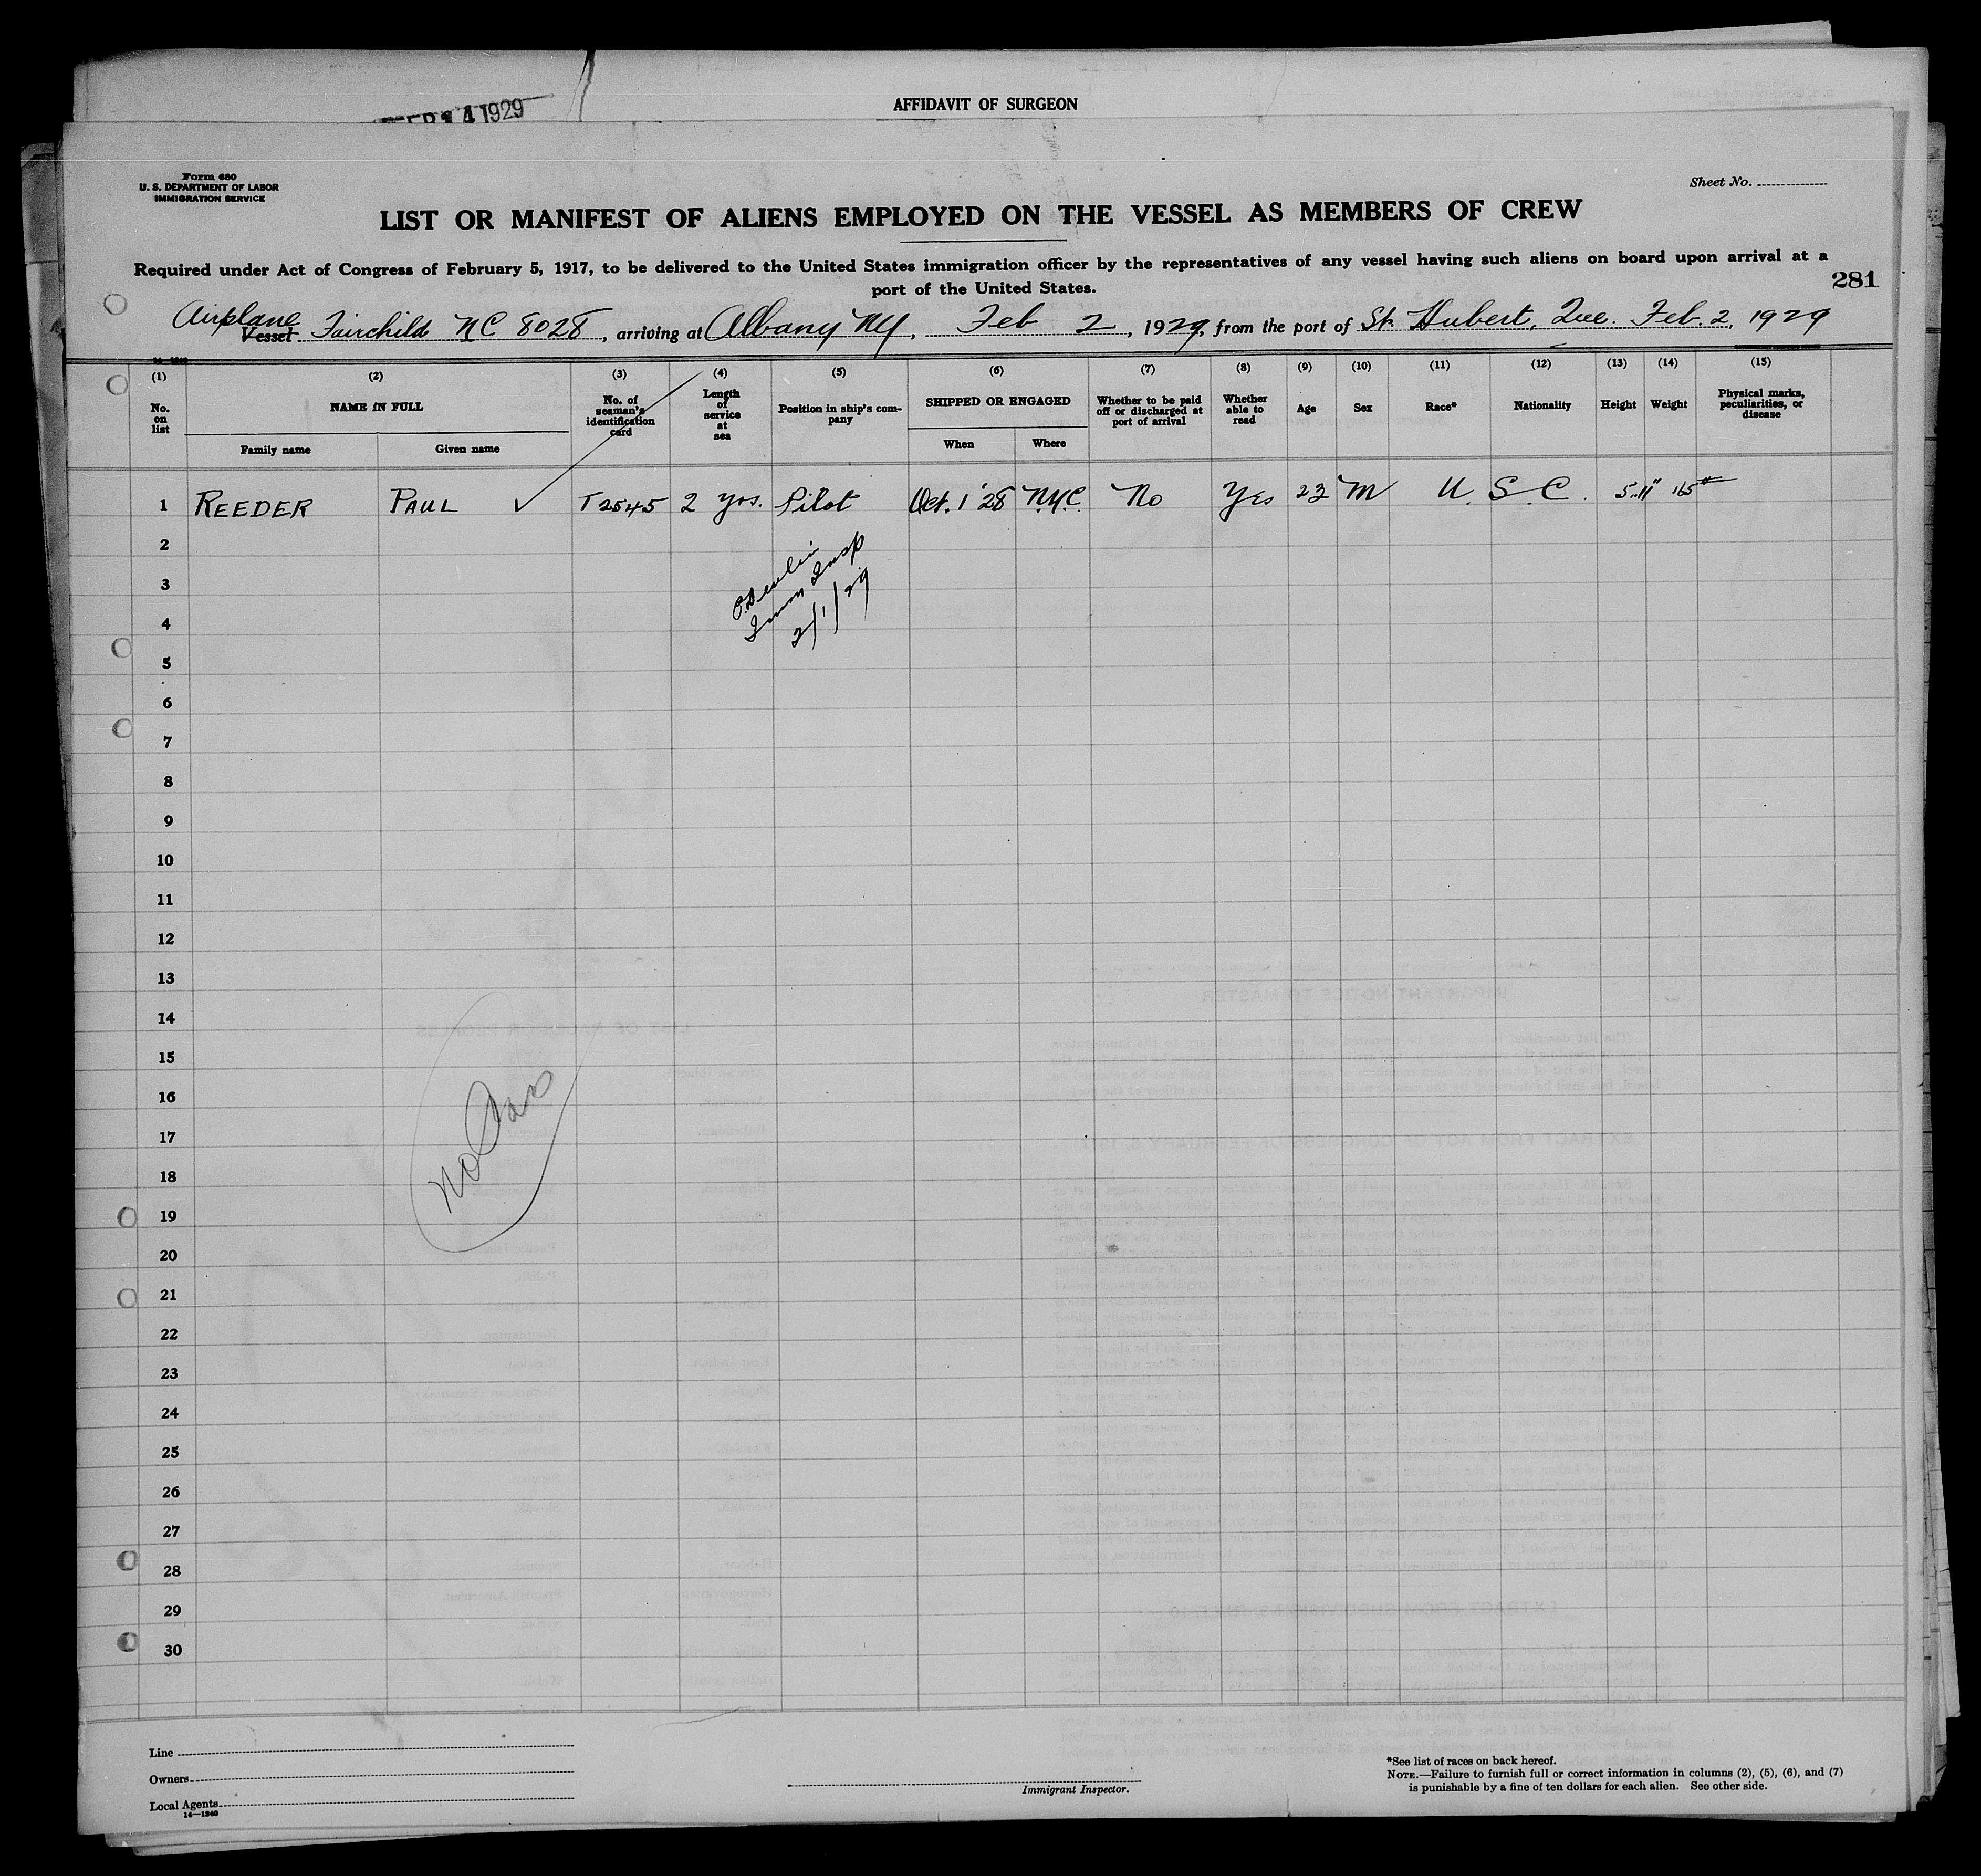 AFFIDAVIT OF SURGEON
4 1929
Form 680
U. S. DEPARTMENT OF LABOR
IMMIGRATION SERVICE
Sheet No.
LIST OR MANIFEST OF ALIENS EMPLOYED ON THE VESSEL AS MEMBERS OF CREW
Required under Act of Congress of February 5, 1917, to be delivered to the United States immigration officer by the representatives of any vessel having such aliens on board upon arrival at a
port of the United States.
281
Airplane
Vessel Fairchild NC 8028, arriving at Albany NY, Feb 2, 1929, from the port of St. Hubert, Que. Feb. 2, 1929
14-1240
(1) (2) (3) (4) (5) (6) (7) (8) (9) (10) (11) (12) (13) (14) (15)
No. on list
NAME IN FULL
Family name
Given name
No. of seaman's identification card
Length of service at sea
Position in ship's company
SHIPPED OR ENGAGED
When
Where
Whether to be paid off or discharged at port of arrival
Whether able to read
Age
Sex
Race*
Nationality
Height
Weight
Physical marks, peculiarities, or disease
1 REEDER PAUL ✓ T2545 2 yrs. Pilot Oct. 1 '28 N.Y.C. No Yes 23 M U. S. C. 5'11" 165#
2
3
Immn Insp
2/1/29
4
5
6
7
8
9
10
11
12
13
14
15
16
17
18
19
20
21
22
23
24
25
26
27
28
29
30
Line
Owners
Local Agents
14-1240
Immigrant Inspector.
*See list of races on back hereof.
NOTE.—Failure to furnish full or correct information in columns (2), (5), (6), and (7)
is punishable by a fine of ten dollars for each alien. See other side.